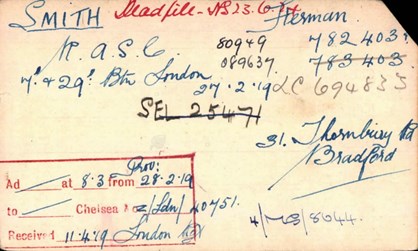 SMITH Deadfile - NB 23.6. Herman
R.A.S.C 80949 782403
7' & 29' Btn London 089637 783403
27.2.19 LC 694835
SEL 25471
31. Thornbury Rd
Bradford
Prov:
Ad at 8.3 from 28-2-19
to Chelsea No 2/Ldn/40751.
Received 11.4.19 London
4/MB/8044.